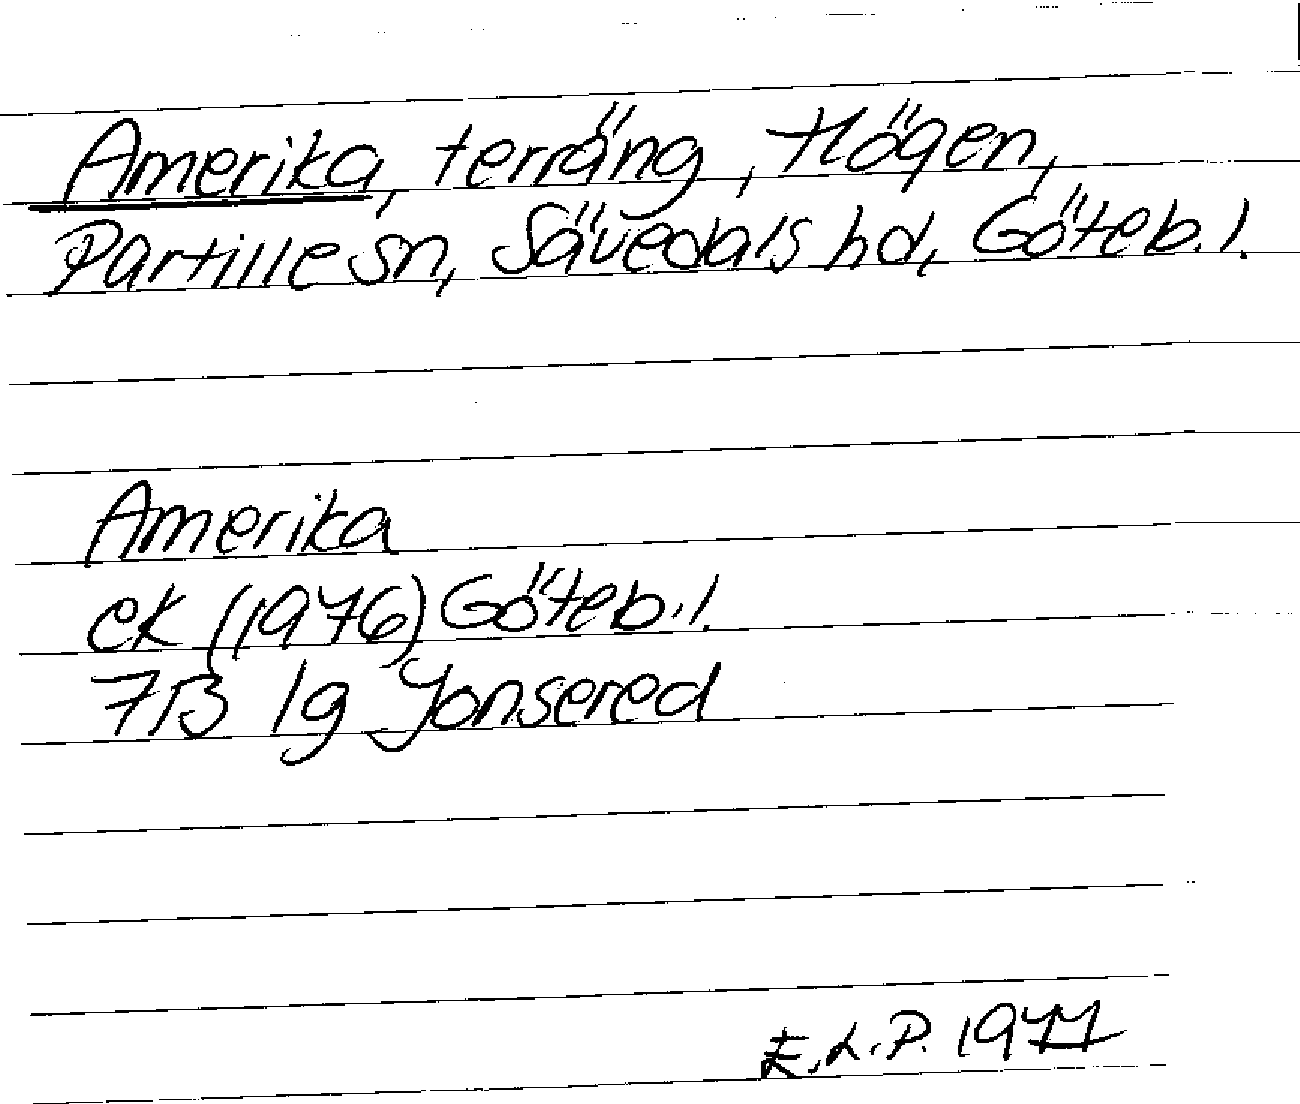 Amerika, terräng, Högen,
Partille sn, Sävedals hd, Göteb. l.
Amerika
ek (1976) Göteb. l.
7B 1g Jonsered
E.L.P. 1977